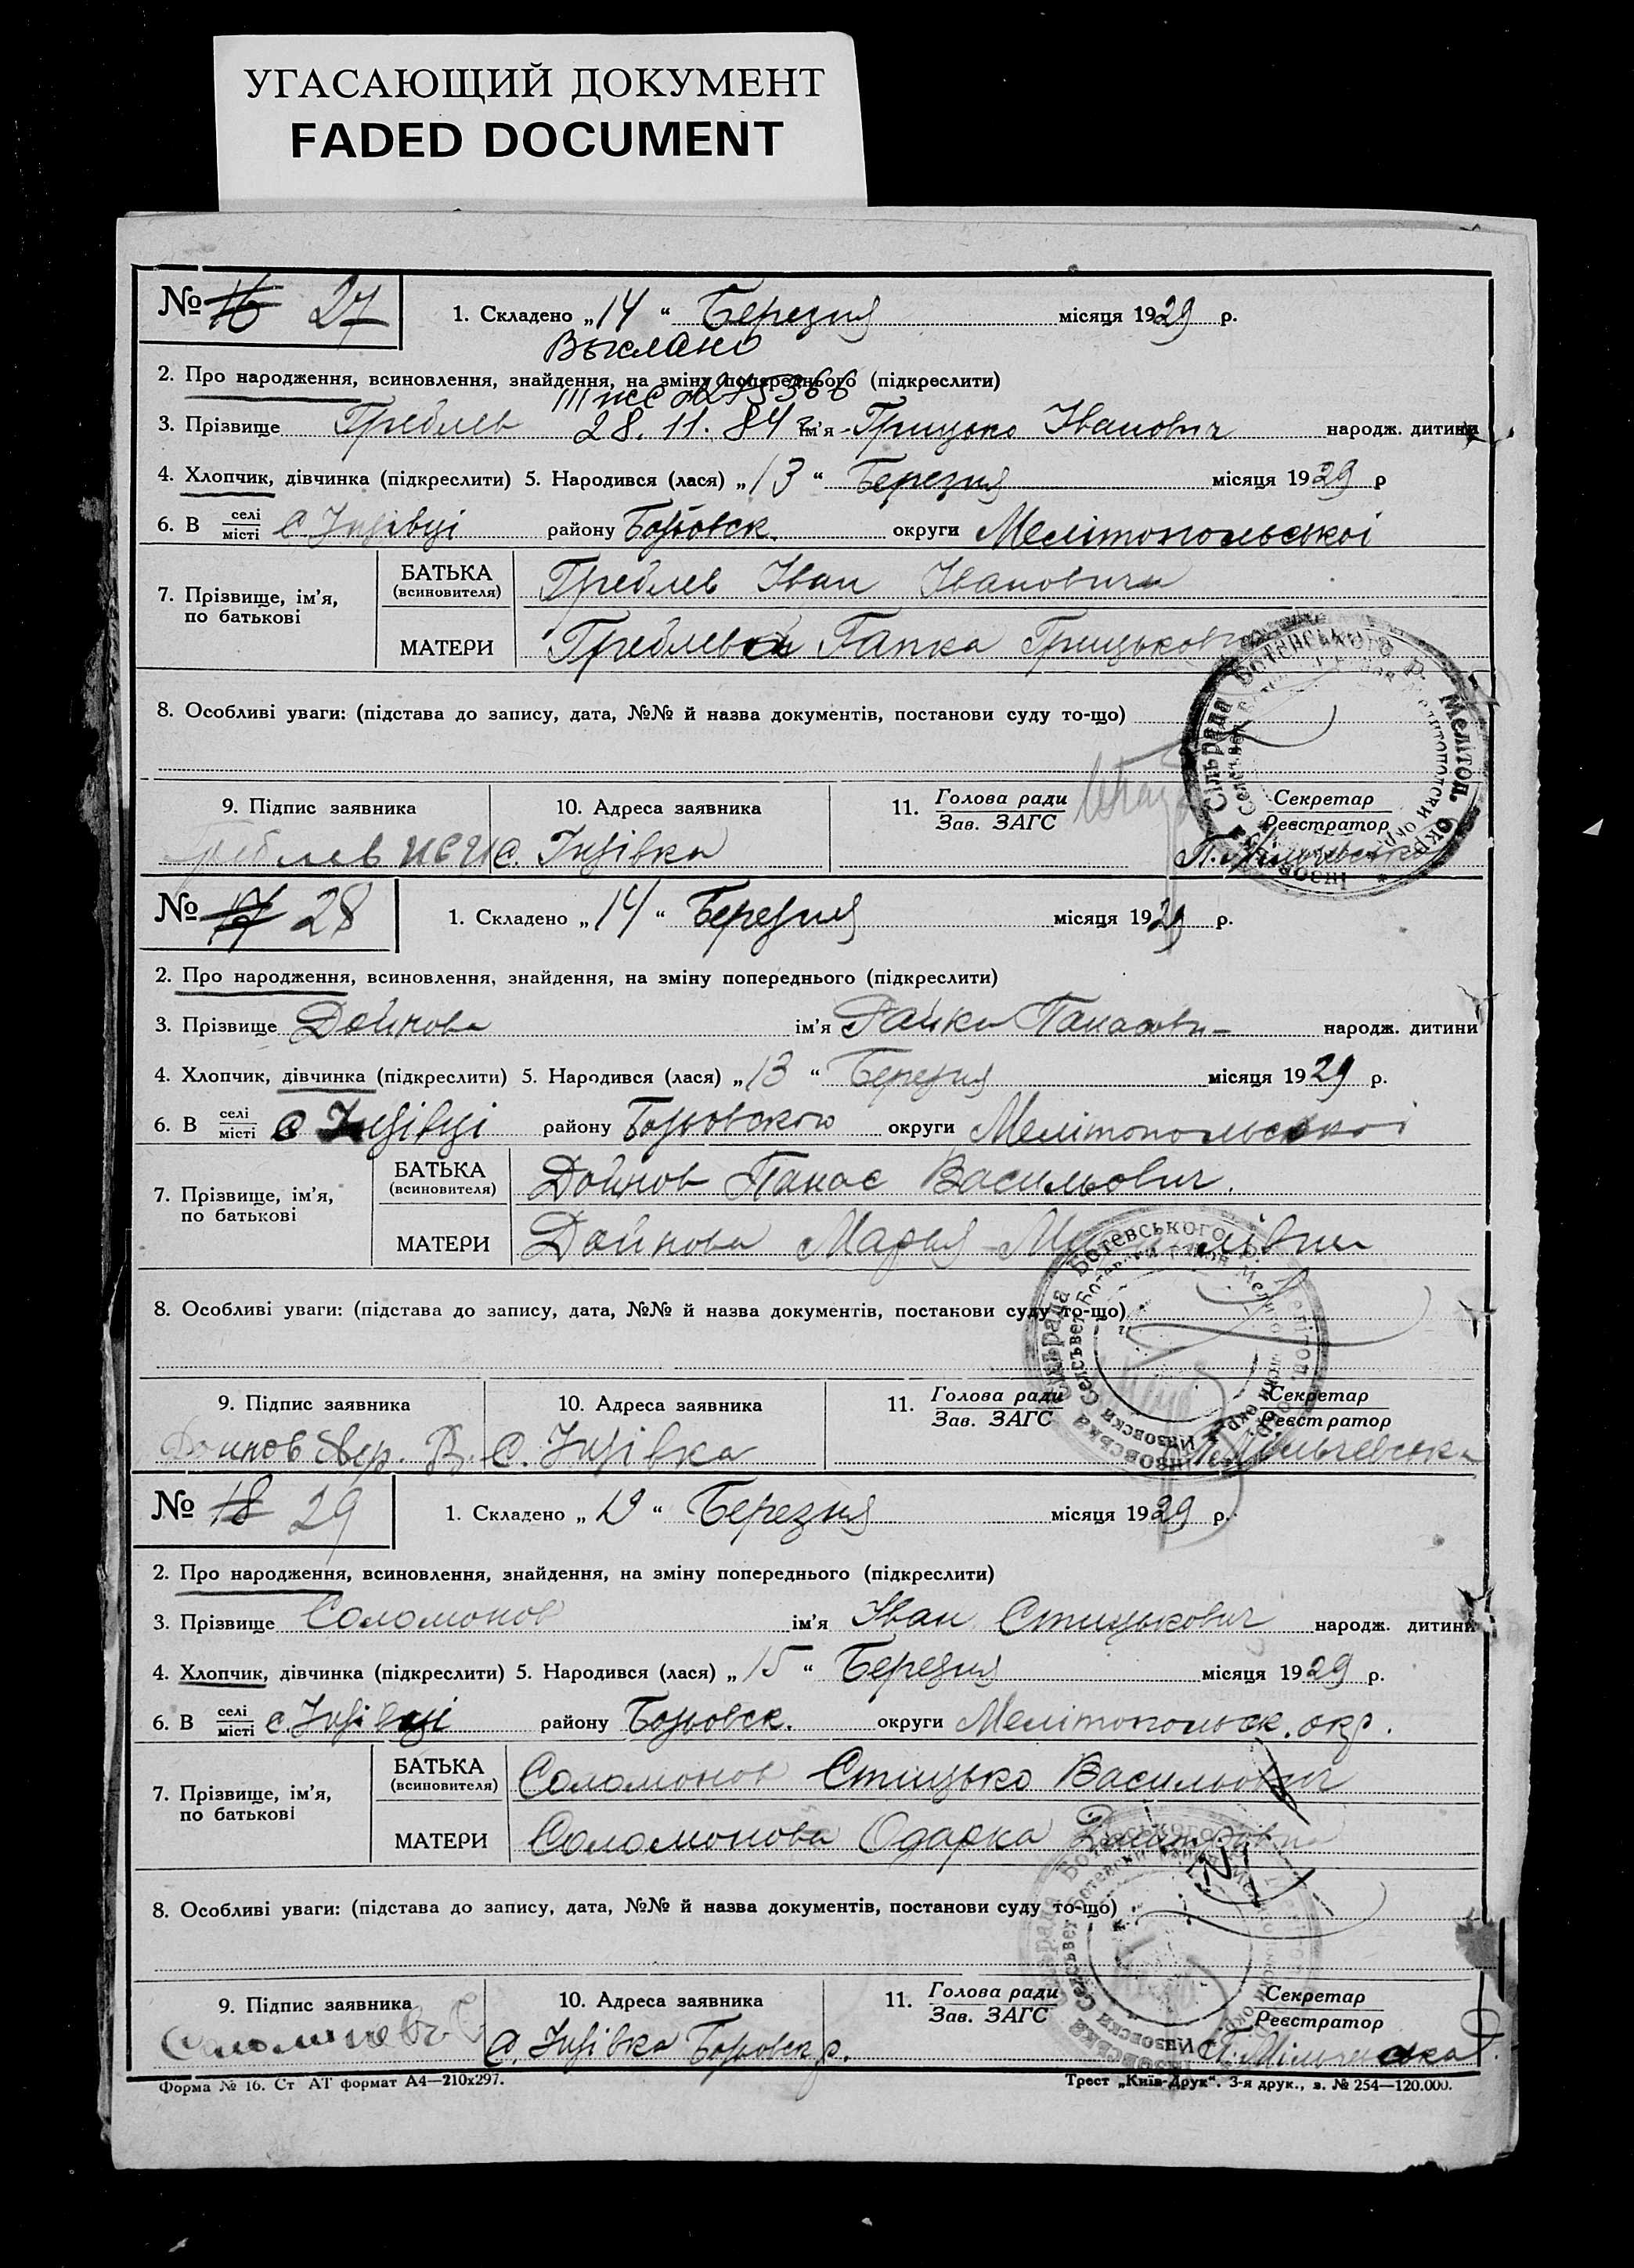 УГАСАЮЩИЙ ДОКУМЕНТ
FADED DOCUMENT
№ 16 27
1. Складено „14“ Березня місяця 1929 р.
Выслано
2. Про народження, всиновлення, знайдення, на зміну попереднього (підкреслити)
III жс №275366
3. Прізвище Греблев 28.11.84 г ім'я Грицько Іванович народж. дитини
4. Хлопчик, дівчинка (підкреслити) 5. Народився (лася) „13“ Березня місяця 1929 р
6. В селі місті С. Інзівці району округи Мелітопольської
7. Прізвище, ім'я, по батькові
БАТЬКА (всиновителя) Греблев Іван Іванович
МАТЕРИ Греблева Гапка Грицьков
8. Особливі уваги: (підстава до запису, дата, №№ й назва документів, постанови суду то-що)
9. Підпис заявника
10. Адреса заявника
11. Голова ради Зав. ЗАГС
Секретар Реєстратор
С. Інзівка
№ 17 28
1. Складено „14“ Березня місяця 1929 р.
2. Про народження, всиновлення, знайдення, на зміну попереднього (підкреслити)
3. Прізвище Дойнова ім'я Райка Панасовн- народж. дитини
4. Хлопчик, дівчинка (підкреслити) 5. Народився (лася) „13“ Березня місяця 1929 р.
6. В селі місті С Інзівці району округи Мелітопольської
7. Прізвище, ім'я, по батькові
БАТЬКА (всиновителя) Дойнов Панас Васильович.
МАТЕРИ Дойнова Мария
8. Особливі уваги: (підстава до запису, дата, №№ й назва документів, постакови суду то-що)
9. Підпис заявника
10. Адреса заявника
11. Голова ради Зав. ЗАГС
Секретар Реєстратор
Дойнов С. Інзівка П. Мільчевська
№ 18 29
1. Складено „19“ Березня місяця 1929 р.
2. Про народження, всиновлення, знайдення, на зміну попереднього (підкреслити)
3. Прізвище Соломонов ім'я Іван Стицькович народж. дитини
4. Хлопчик, дівчинка (підкреслити) 5. Народився (лася) „15“ Березня місяця 1929 р.
6. В селі місті с. Інзівці району округи Мелітопольськ. окр.
7. Прізвище, ім'я, по батькові
БАТЬКА (всиновителя) Соломонов Стицько Васильович
МАТЕРИ Соломонова Одарка
8. Особливі уваги: (підстава до запису, дата, №№ й назва документів, постанови суду то-що)
9. Підпис заявника
10. Адреса заявника
11. Голова ради Зав. ЗАГС
Секретар Реєстратор
С. Інзівка
Форма № 16. Ст АТ формат А4—210х297.
Трест „Київ-Друк“. 3-я друк., з. № 254—120.000.